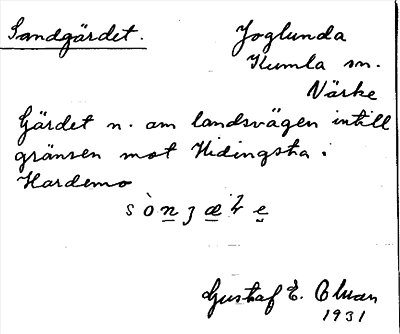 Sandgärdet. Joglunda
Kumla sn.
Närke
Gärdet n. om landsvägen intill
gränsen mot Hidingsta i
Hardemo
Gustaf E.
1931